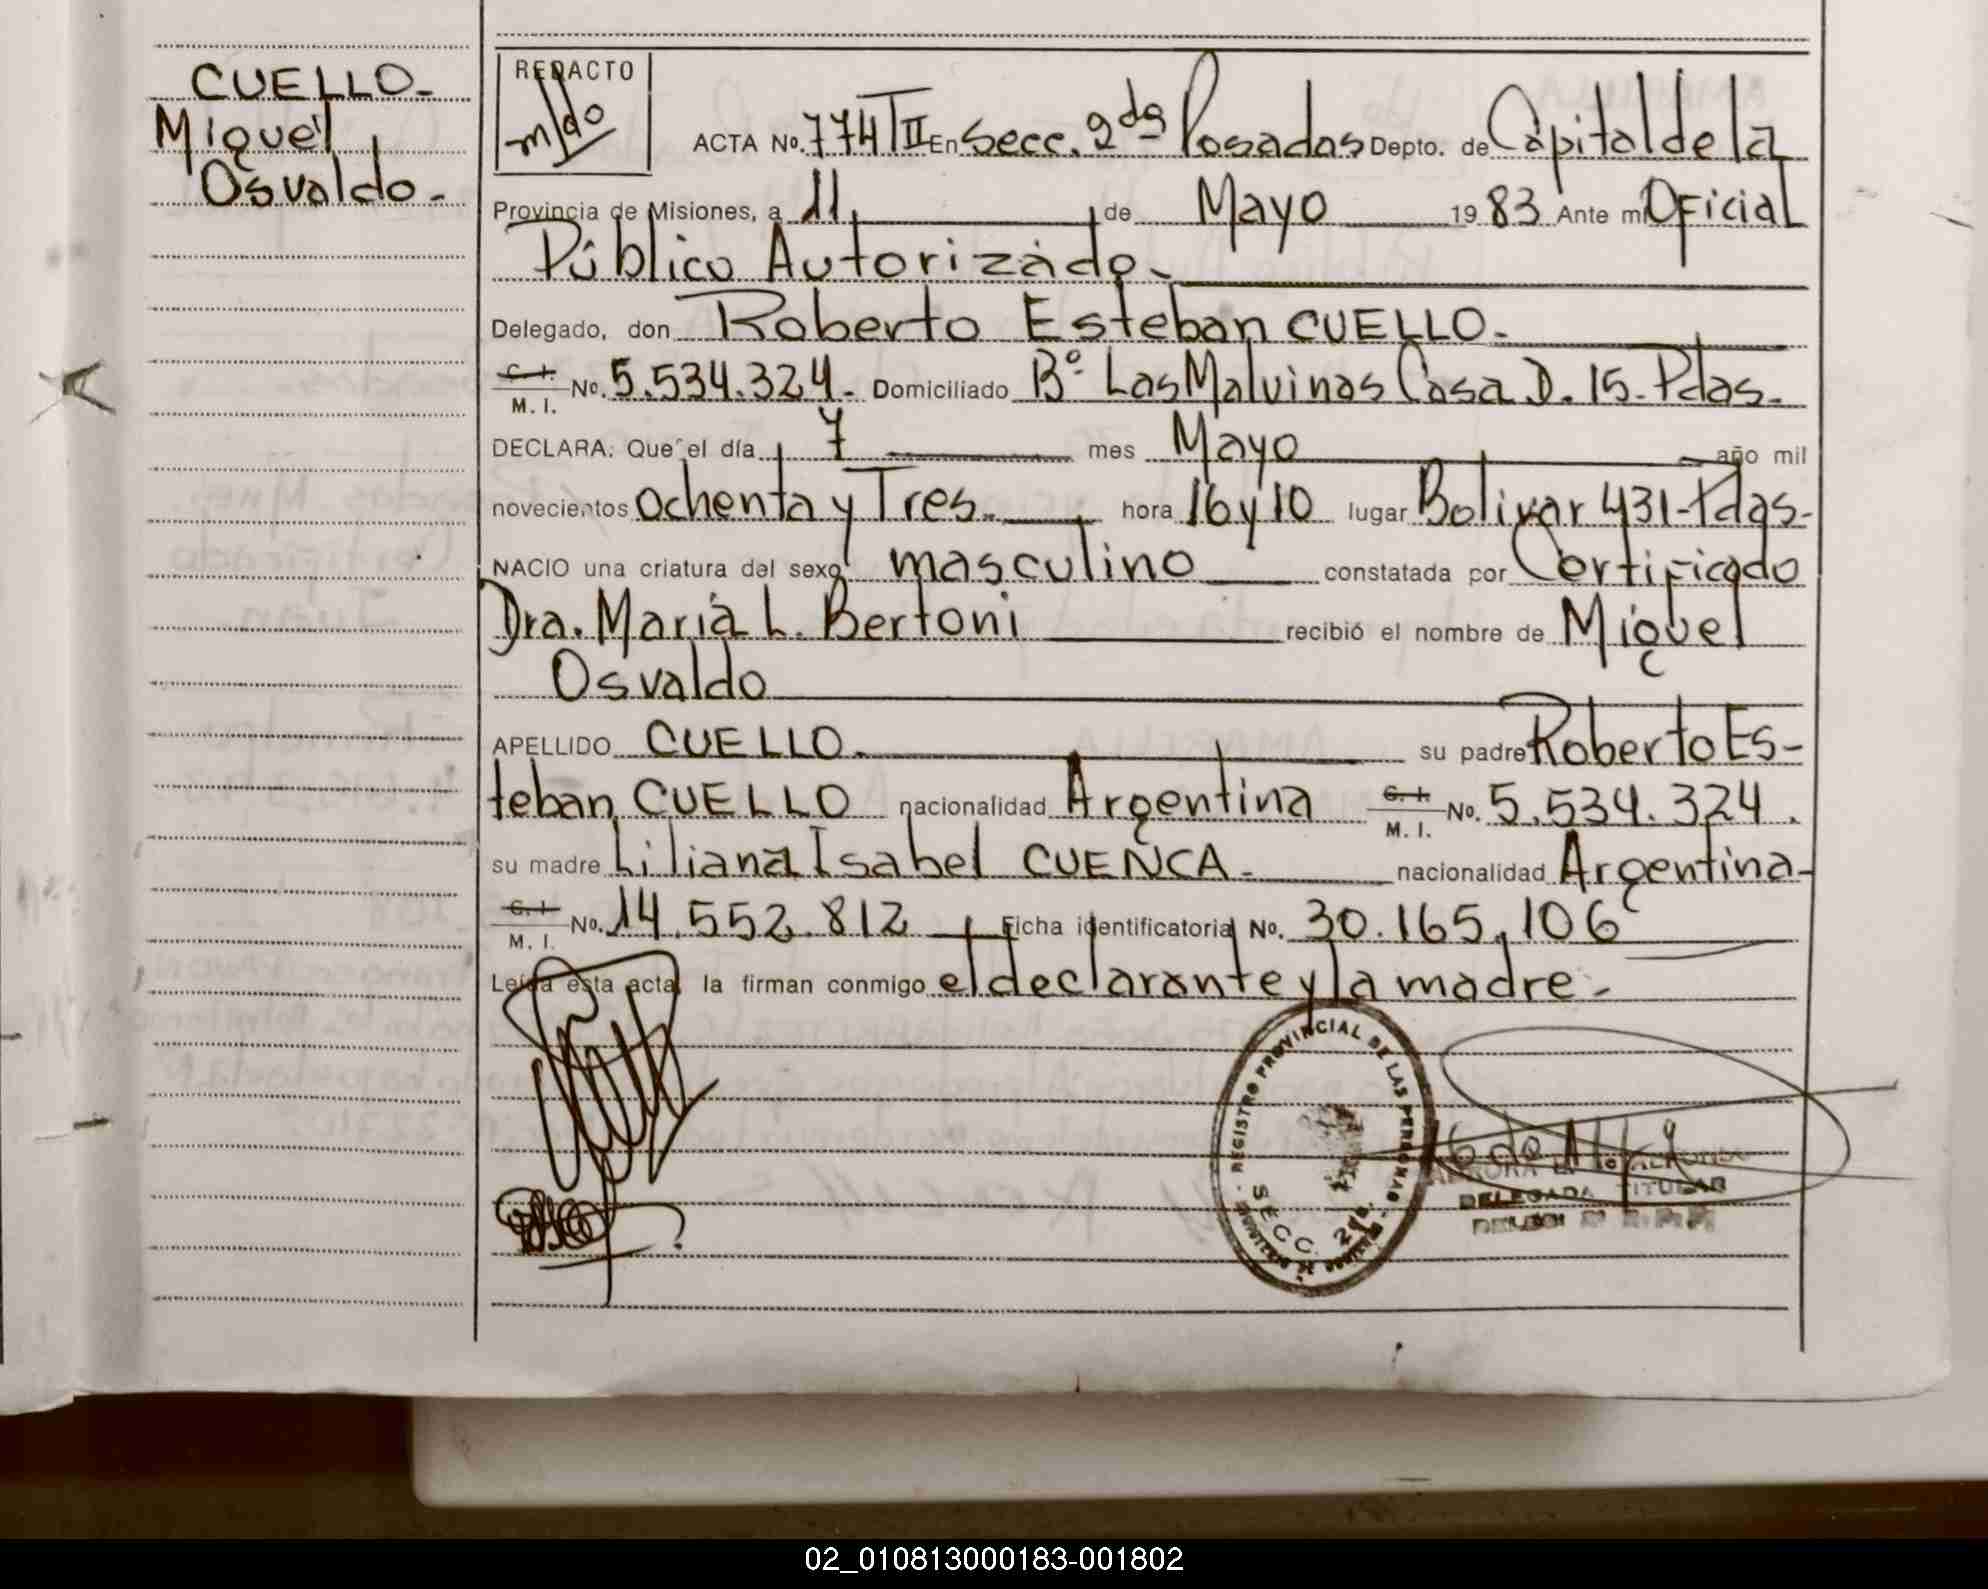 CUELLO-
Miguel
Osvaldo-
REDACTO
ACTA No. 774 T II En Secc. 2da Posadas Depto. de Capital de la
Provincia de Misiones, a 11 de Mayo 1983 Ante mi Oficial
Público Autorizado-
Delegado, don Roberto Esteban CUELLO-
C. I.
M. I. No. 5.534.324- Domiciliado Bº Las Malvinas Casa D. 15- Pdas-
DECLARA: Que el día 7 mes Mayo año mil
novecientos ochenta y Tres- hora 16 y 10 lugar Bolivar 431-Pdas-
NACIO una criatura del sexo masculino constatada por Certificado
Dra. Maria L. Bertoni recibió el nombre de Miguel
Osvaldo
APELLIDO CUELLO- su padre Roberto Es-
teban CUELLO nacionalidad Argentina C. I.
M. I. No. 5.534.324.
su madre Liliana Isabel CUENCA- nacionalidad Argentina-
C. I.
M. I. No. 14.552.812 Ficha identificatoria No. 30.165.106
Leída esta acta la firman conmigo el declarante y la madre-
REGISTRO PROVINCIAL DE LAS PERSONAS
SECC. 2da
DELEGADA TITULAR
02_010813000183-001802